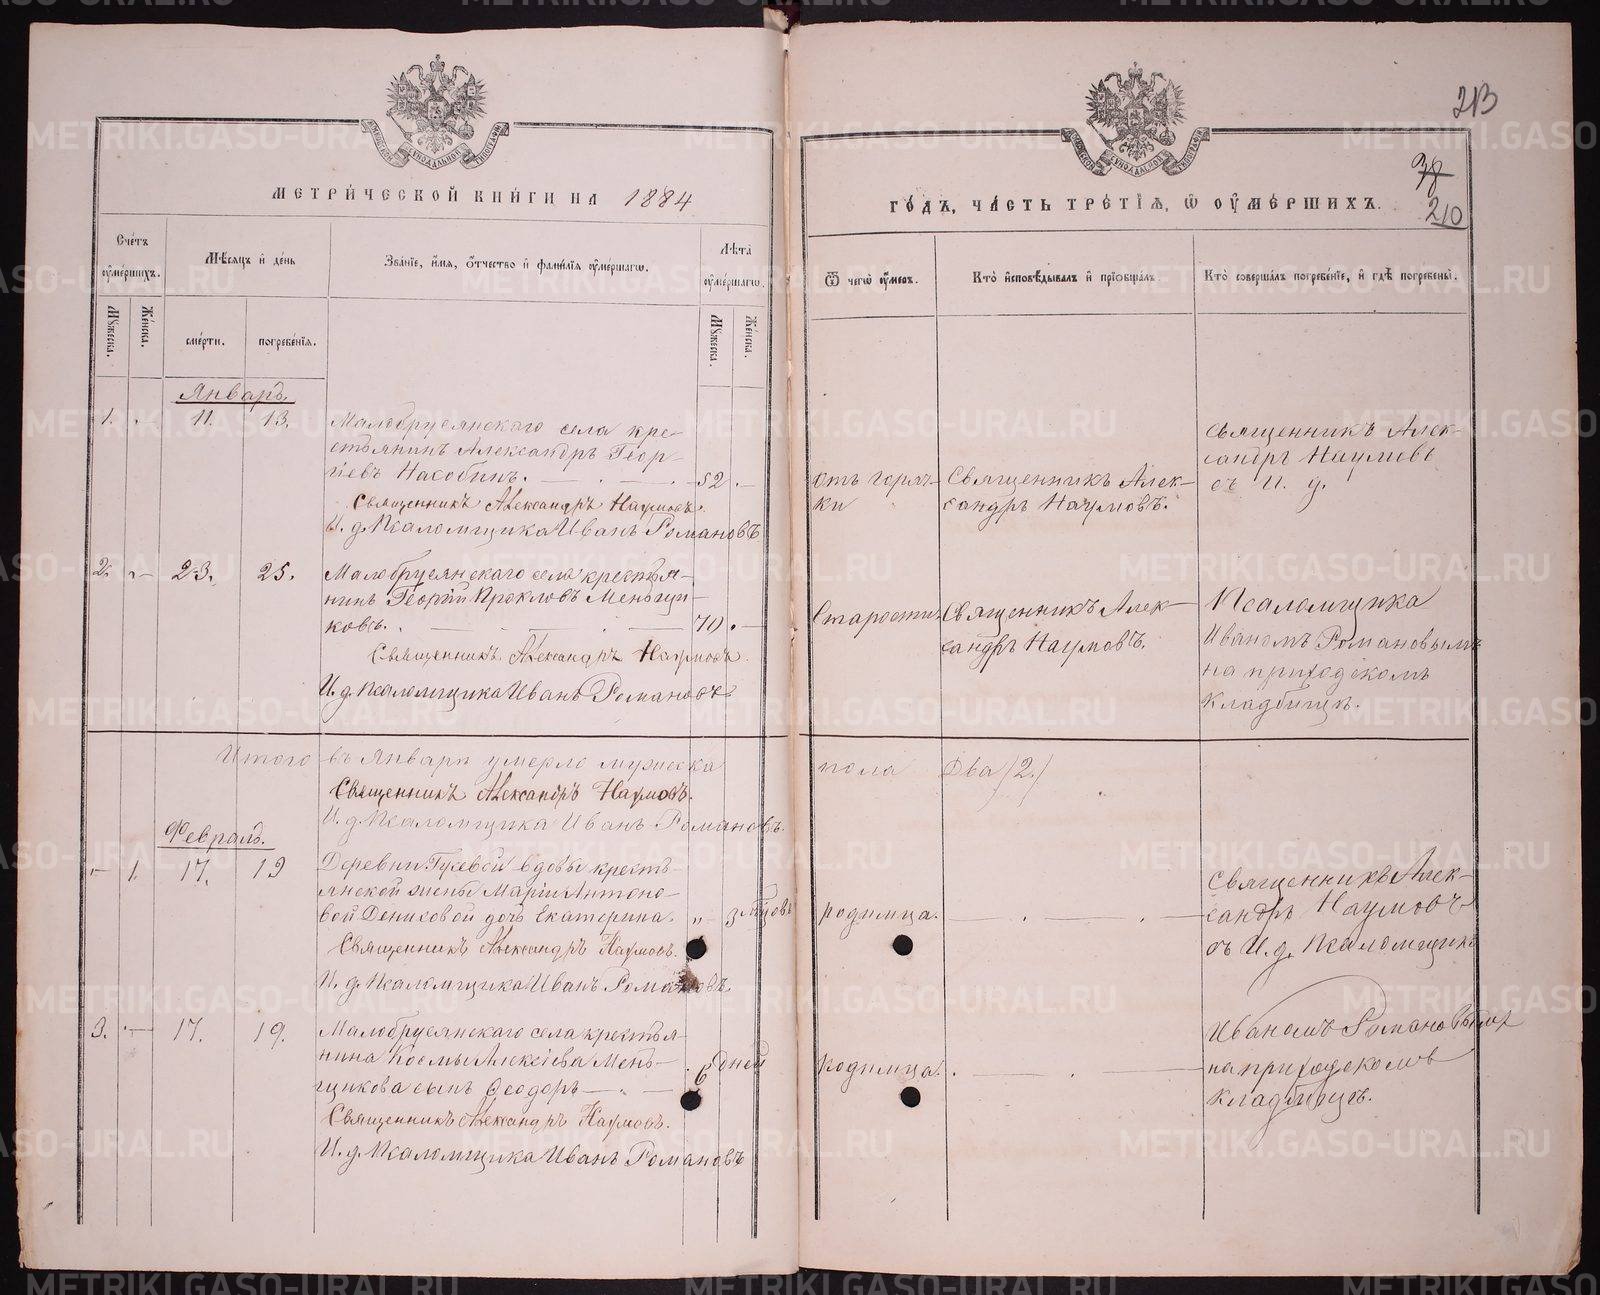 213
38
210
МОСКОВСКОЙ СѴНОДАЛЬНОЙ ТИПОГРАФІИ
МЕТРИ́ЧЕСКОЙ КНИ́ГИ НА 1884
ГО́ДЪ, ЧА́СТЬ ТРЕ́ТІѦ, Ѡ҆ ОУ҆МЕ́РШИХЪ.
Сче́тъ оу҆ме́ршихъ.
Мꙋ́жеска.
Же́нска.
Мѣ́сѧцъ и҆ де́нь
сме́рти.
погребе́нїѧ.
Зва́нїе, и҆́мѧ, ѻ҆́тчество и҆ фами́лїѧ оу҆ме́ршагѡ.
Лѣ́та оу҆ме́ршагѡ.
Мꙋ́жеска.
Же́нска.
Ѿ чегѡ̀ оу҆́меръ.
Кто̀ и҆сповѣ́дывалъ и҆ прїѻбща́лъ.
Кто̀ соверша́лъ погребе́нїе, и҆ гдѣ̀ погребены̀.
Январь.
1. - 11. 13.
Малобрусянскаго села кре-
стьянинъ Александръ Геор-
гіевъ Насобинъ. 52
Священникъ Александръ Наумовъ.
И. д. Псаломщика Иванъ Романовъ
отъ горяч-
ки
Священникъ Алек-
сандръ Наумовъ.
Священникъ Алек-
сандръ Наумовъ
съ И. д.
2. - 23. 25.
Малобрусянскаго села крестья-
нинъ Георгій Прокловъ Меньщи-
ковъ. 70
Священникъ Александръ Наумовъ.
И. д. Псаломщика Иванъ Романовъ
Старости.
Священникъ Алек-
сандръ Наумовъ.
Псаломщика
Иваномъ Романовымъ
на приходскомъ
кладбищѣ.
Итого въ Январѣ умерло мужеска пола Два (2.)
Священникъ Александръ Наумовъ.
И. д. Псаломщика Иванъ Романовъ.
Февраль.
- 1. 17. 19
Деревни Гусевой вдовы кресть-
янской жены Маріи Антоно-
вой дочь Екатерина. " 3 мѣсяцовъ
Священникъ Александръ Наумовъ.
И. д. Псаломщика Иванъ Романовъ.
родимца.
Священникъ Алек-
сандръ Наумовъ
съ И. д. Псаломщика
3. - 17. 19.
Малобрусянскаго села крестья-
нина Космы Алексіева Мень-
щикова сынъ Ѳеодоръ 6 дней
Священникъ Александръ Наумовъ.
И. д. Псаломщика Иванъ Романовъ
родимца.
Иваномъ Романовымъ
на приходскомъ
кладбищѣ.
METRIKI.GASO-URAL.RU